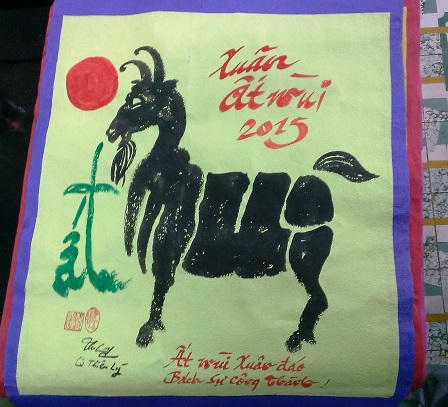 Xuân
Ất Mùi
2015
Lê Thiên Lý
Ất mùi Xuân đáo
Bách sự công thành!